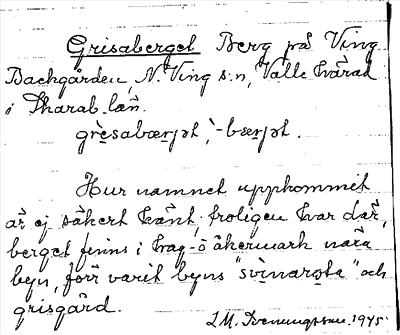 Grisaberget Berg på Ving
Backgården, N. Ving s:n, Valle härad
i Skarab. län.
gre̱sabærjət, -bærjət.
Hur namnet uppkommit
är ej säkert känt, troligen har där,
berget finns i hag- o åkermark nära
byn, förr varit byns "svinarsta" och
grisgård.
1945